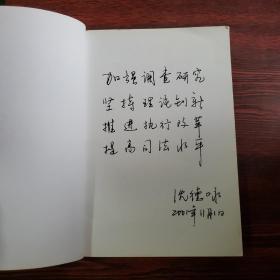 加强调查研究
坚持理论创新
推进执行改革
提高司法水平
沈德咏
2001年11月1日